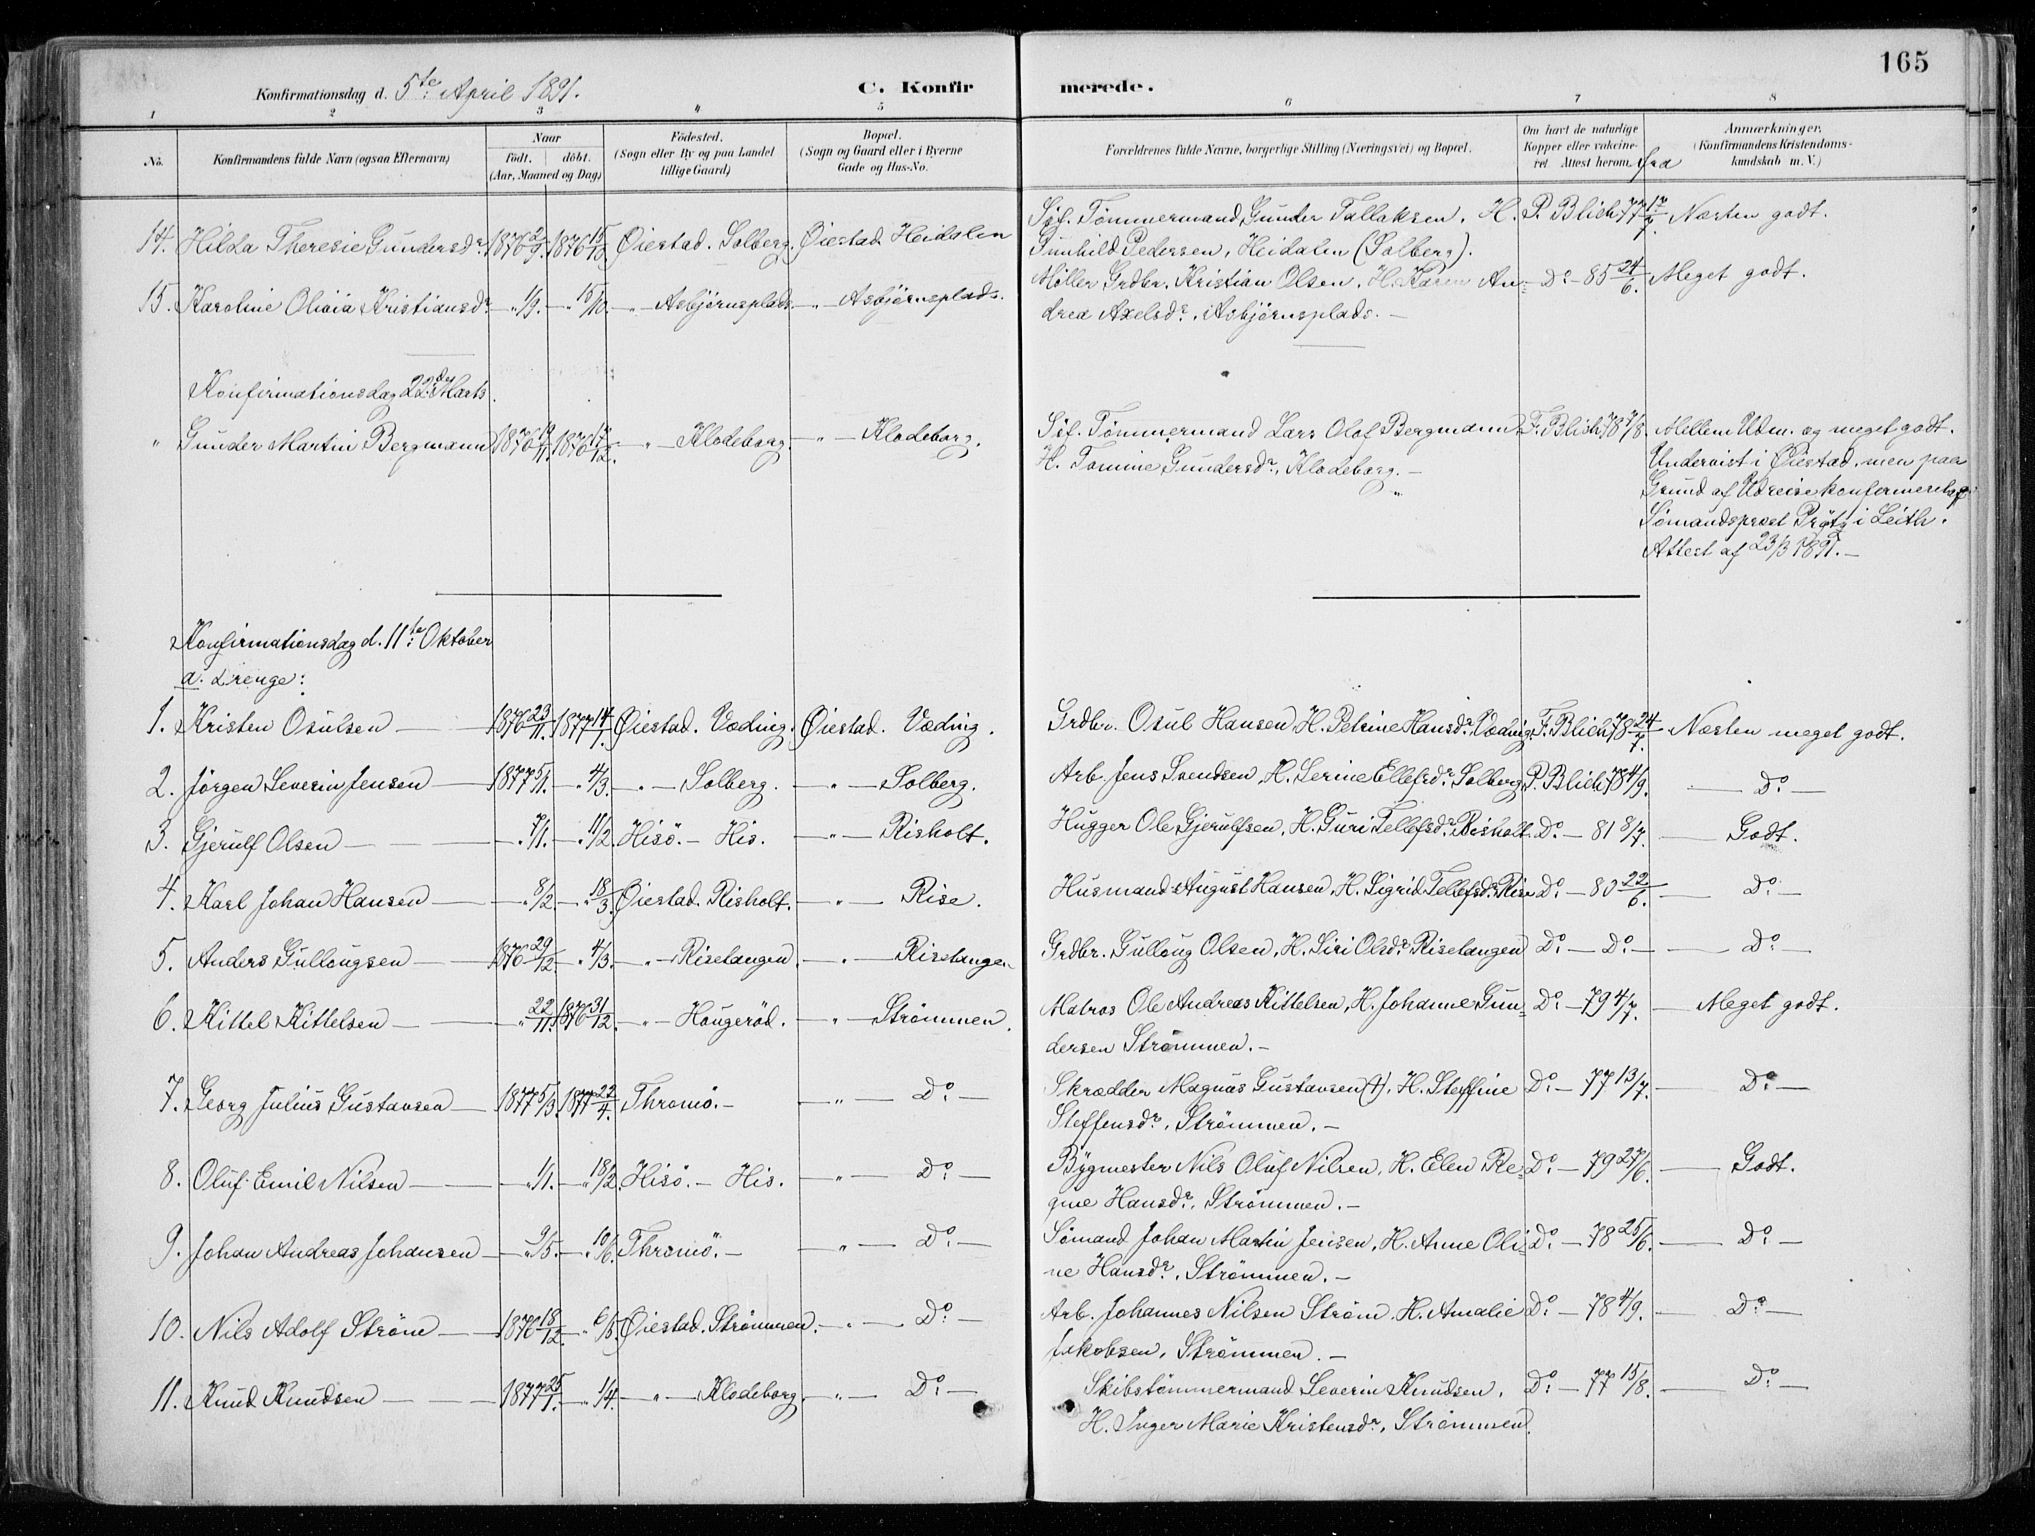 165
Konfirmationsdag d. 5te April 1891. C. Konfirmerede.
1 2 3 4 5 6 7 8
No. Konfirmandens fulde Navn (ogsaa Efternavn) Naar født, døbt. (Aar, Maaned og Dag) Fødested. (Sogn eller By og paa Landet tillige Gaard) Bopæl. (Sogn og Gaard eller i Byerne Gade og Hus-No. Forældrenes fulde Navne, borgerlige Stilling (Næringsvei) og Bopæl. Om havt de naturlige Kopper eller vakcineret. Attest herom fra Anmærkninger. (Konfirmandens Kristendomskundskab m. V.)
14. Hilda Theresie Gundersdr. 1876 2/9. 1876 15/10 Øiestad. Solberg. Øiestad Heidalen Søf. Tømmermand Gunder Tallaksen. H. P. Blich 77 17/7. Næsten godt.
Gunhild Pedersen, Heidalen (Solberg).
15. Karoline Olivia Kristiansdr. " 1/9. — " 15/10. — " — Asbjørnsplads. — " — Asbjørnsplads. Møller Grdbr. Kristian Olsen, H. Karen An- Do — 85 24/6. Meget godt.
drea Axelsdr., Asbjørnsplads. —
Konfirmationsdag 22de Marts.
" Gunder Martin Bergmann 1876 19/11. 1876 17/12. — " — Klodeborg. — " — Klodeborg. Søf. Tømmermand Lars Olof Bergmann F. Blich 78 7/8. Mellem Udm. og meget godt.
H. Tomine Gundersdr., Klodeborg. — Undervist i Øiestad, men paa
Grund af Udreise konfirmeret af
Sømandsprest i Leith.
Attest af 23/3 1891. —
Konfirmationsdag d. 11te Oktober
a. Drenge:
1. Kristen Osulsen — 1876 23/11. 1877 14/1. Øiestad. Væding. Øiestad. Væding. Grdbr. Osul Hansen, H. Petrine Hansdr. Væding. F. Blich 78 24/7. Næsten meget godt.
2. Jørgen Severin Jensen — 1877 5/1. — " 4/3. — " — Solberg. — " — Solberg. Arb. Jens Svendsen, H. Serine Ellefsdr. Solberg P. Blich 78 4/9. — Do —
3. Gjerulf Olsen — — " 7/1. — " 11/2. Hisö. — His. — " — Risholt. Hugger Ole Gjerulfsen, H. Guri Tellefsdr. Risholt. Do — 81 8/7. — Godt.
4. Karl Johan Hansen — " 8/2. — " 18/3. Øiestad. Risholt. — " — Rise. Husmand August Hansen, H. Sigrid Tellefsdr. Rise Do — 80 22/6. — Do —
5. Anders Gullougsen — 1876 29/12. — " 4/3. — " — Riselangen. — " — Riselangen. Grdbr. Gulloug Olsen, H. Siri Olsdr. Riselangen Do — Do — — Do —
6. Kittel Kittelsen — " 22/11. 1876 31/12. — " — Hougeröd. — " — Strømmen. Matros Ole Andreas Kittelsen, H. Johanne Gun- Do — 79 4/7. — Meget godt.
dersen Strømmen. —
7. Georg Julius Gustavsen — 1877 5/3. 1877 22/4. Thromö. — — " — Do — Skrædder Magnus Gustavsen (†), H. Steffine Do — 77 13/7. — Do —
Steffensdr., Strømmen. —
8. Oluf Emil Nilsen — — " 1/1. — " 18/2. Hisö. — His. — " — Do — Bygmester Nils Oluf Nilsen, H. Elen Re- Do — 79 27/6. — Godt.
gine Hansdr., Strømmen. —
9. Johan Andreas Johansen — " 9/5. — " 10/6. Thromö. — — " — Do — Sømand Johan Martin Jensen, H. Anne Oli- Do — 78 25/6. — Do —
ne Hansdr., Strømmen. —
10. Nils Adolf Strøm — 1876 18/12. — " 6/5. Øiestad. Strømmen. — " — Do — Arb. Johannes Nilsen Strøm. H. Amalie Do — 78 4/9. — Do —
Jakobsen, Strømmen. —
11. Knud Knudsen — 1877 25/1. — " 1/4. — " — Klodeborg. — " — Do — Skibstømmermand Severin Knudsen, Do — 77 15/8. — Do —
H. Inger Marie Kristensdr., Strømmen.